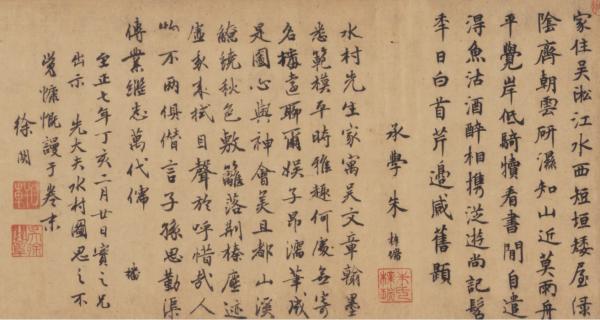 家住吳淞江水西短垣矮屋綠
陰齊朝雲研濕知山近莫雨舟
平覺岸低騎犢看書閒自遣
得魚沽酒醉相攜從遊尚記髫
年日白首芹邊感舊題
承學朱
水村先生家寓吳文章翰墨
悉範模平時雅趣何處無寄
名 聊爾娛子昂濡筆成
是圖心與神會美且都山溪
繚繞秋色敷籬落荆榛塵迹
虛我來拭目聲於呼惜哉人
物不兩俱借言子孫思勤渠
傳業繼志萬代儒
至正七年丁亥二月廿日實之兄
出示 先大夫水村圖思之不
覺慷慨謾于卷末
徐關